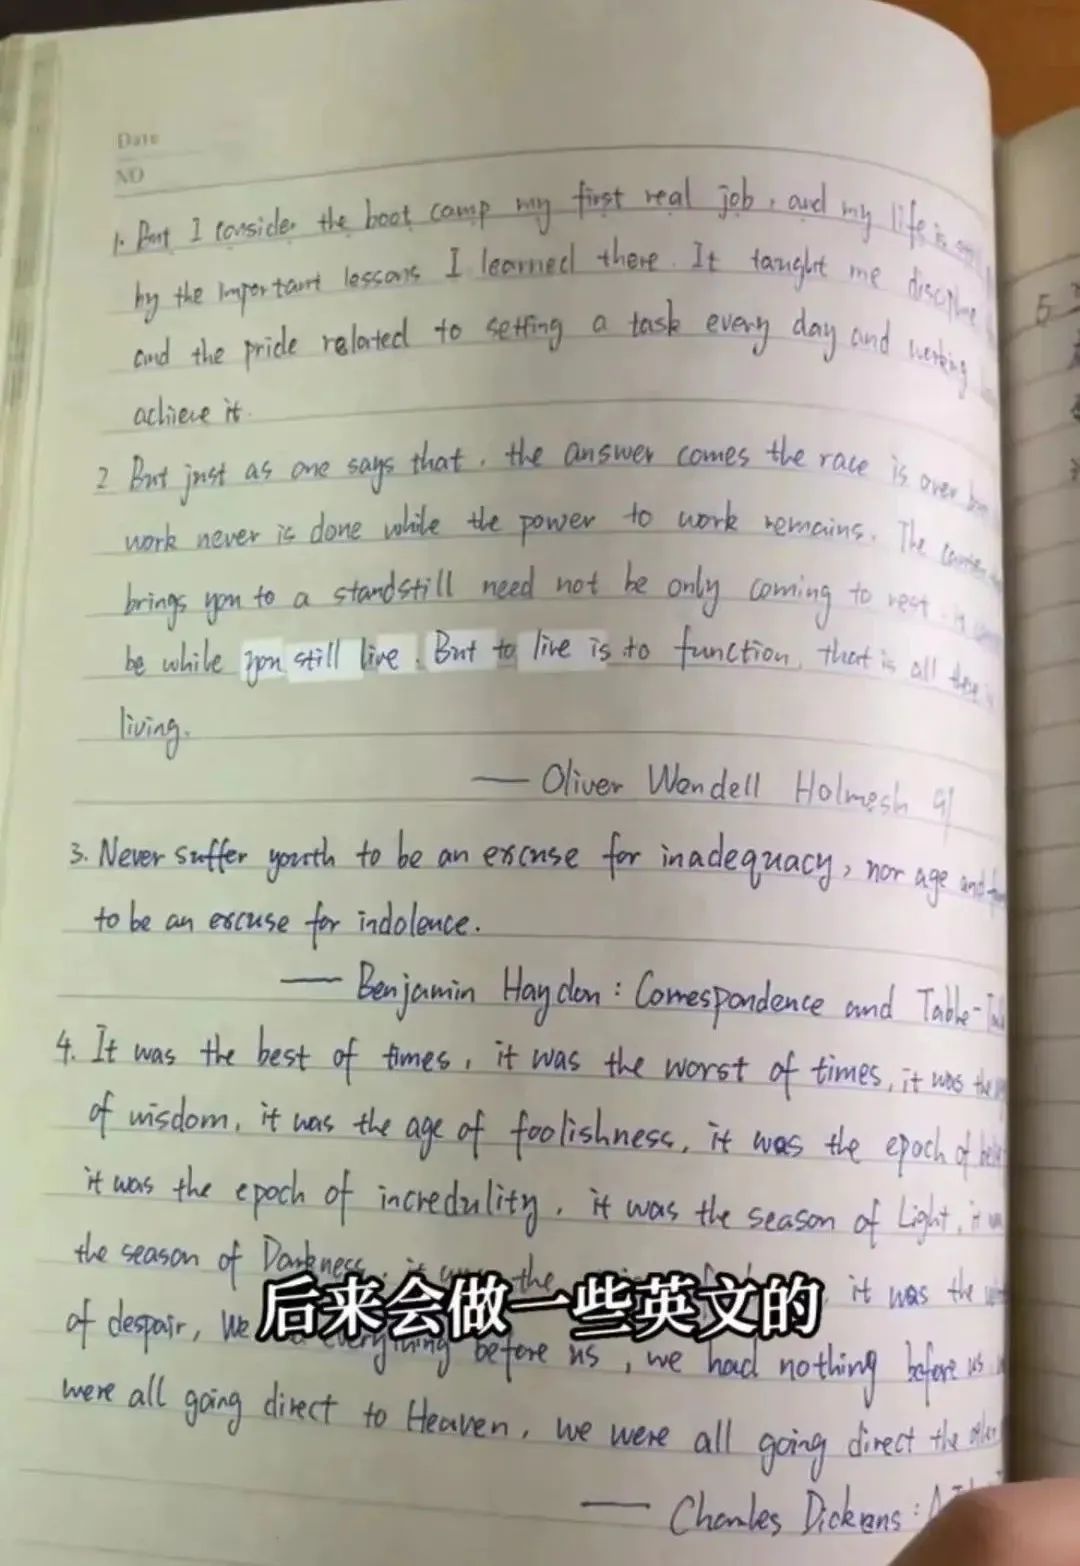 Date
NO
1. But I consider the boot camp my first real job, and my life is still
by the important lessons I learned there. It taught me discipline
and the pride related to setting a task every day and working
achieve it.
2 But just as one says that, the answer comes the race is over
work never is done while the power to work remains. The
brings you to a standstill need not be only coming to rest.
be while you still live. But to live is to function, that is all there is
living.
— Oliver Wendell Holmesh 91
3. Never suffer youth to be an excuse for inadequacy, nor age and
to be an excuse for indolence.
— Benjamin Haydon: Correspondence and Table-
4. It was the best of times, it was the worst of times, it was the
of wisdom, it was the age of foolishness, it was the epoch of
it was the epoch of incredulity, it was the season of Light, it
the season of Darkness, it was the it was the
of despair, we everything before us, we had nothing before us
were all going direct to Heaven, we were all going direct the
— Charles Dickens:
5
后来会做一些英文的